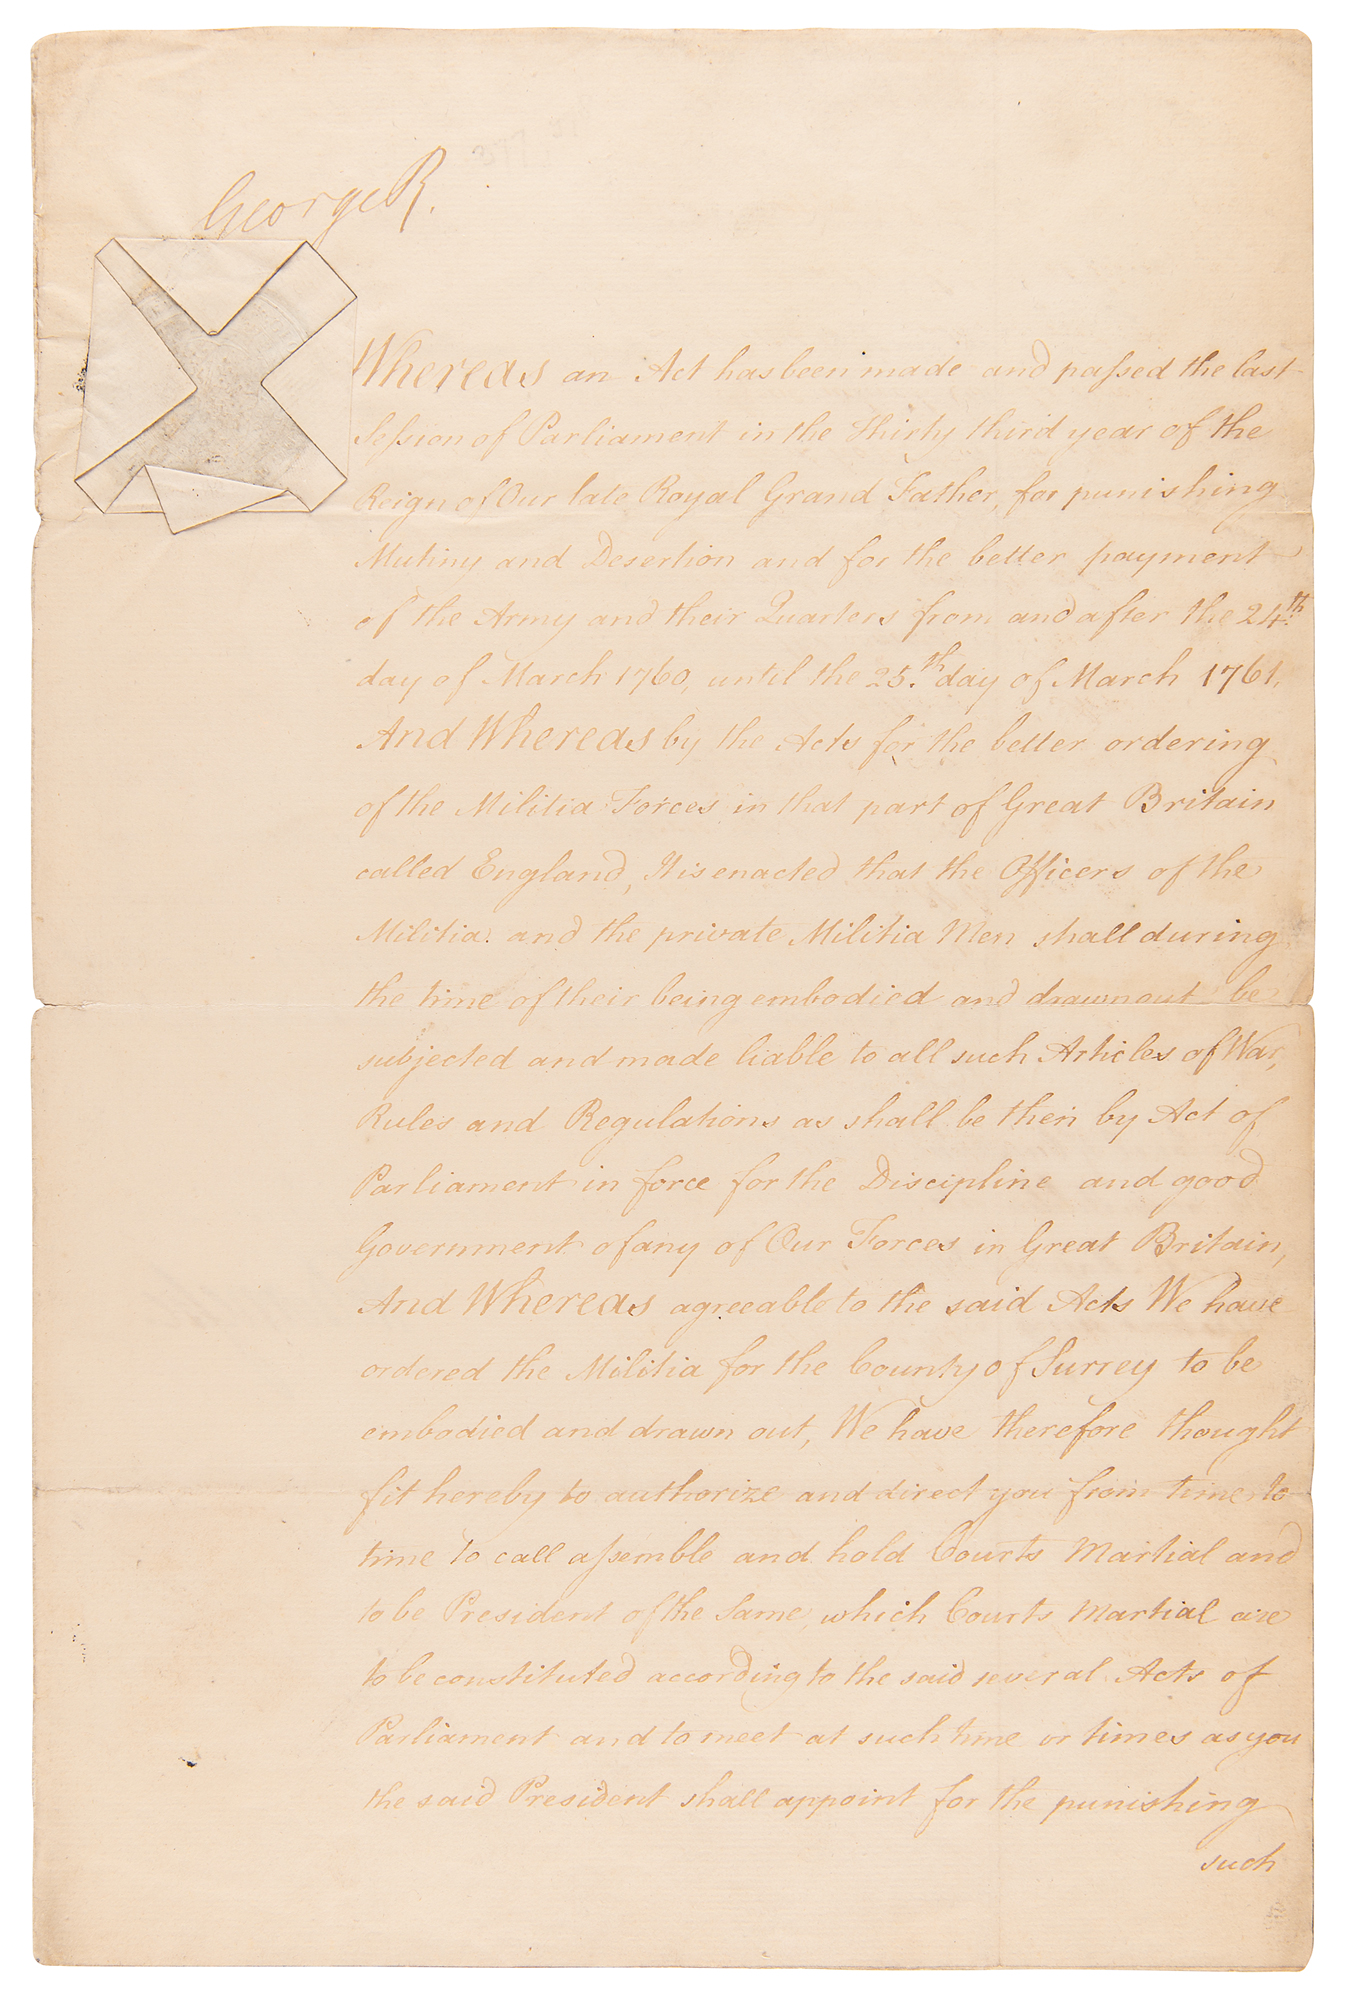 George R.
Whereas an Act has been made and paſsed the last
Seſsion of Parliament in the Thirty third year of the
Reign of Our late Royal Grand Father, for punishing
Mutiny and Desertion and for the better payment
of the Army and their Quarters from and after the 24.th
day of March 1760, until the 25.th day of March 1761,
And Whereas by the Acts for the better ordering
of the Militia Forces in that part of Great Britain
called England, It is enacted that the Officers of the
Militia and the private Militia Men shall during
the time of their being embodied and drawn out be
subjected and made liable to all such Articles of War,
Rules and Regulations as shall be then by Act of
Parliament in force for the Discipline and good
Government of any of Our Forces in Great Britain,
And Whereas agreeable to the said Acts We have
ordered the Militia for the County of Surrey to be
embodied and drawn out, We have therefore thought
fit hereby to authorize and direct you from time to
time to call aſsemble and hold Courts Martial and
to be President of the Same, which Courts Martial are
to be constituted according to the said several Acts of
Parliament and to meet at such time or times as you
the said President shall appoint for the punishing
such